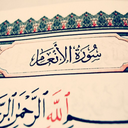 سُورَةُ الأَنْعَامِ
اللَّهِ الرَّحْمَٰنِ